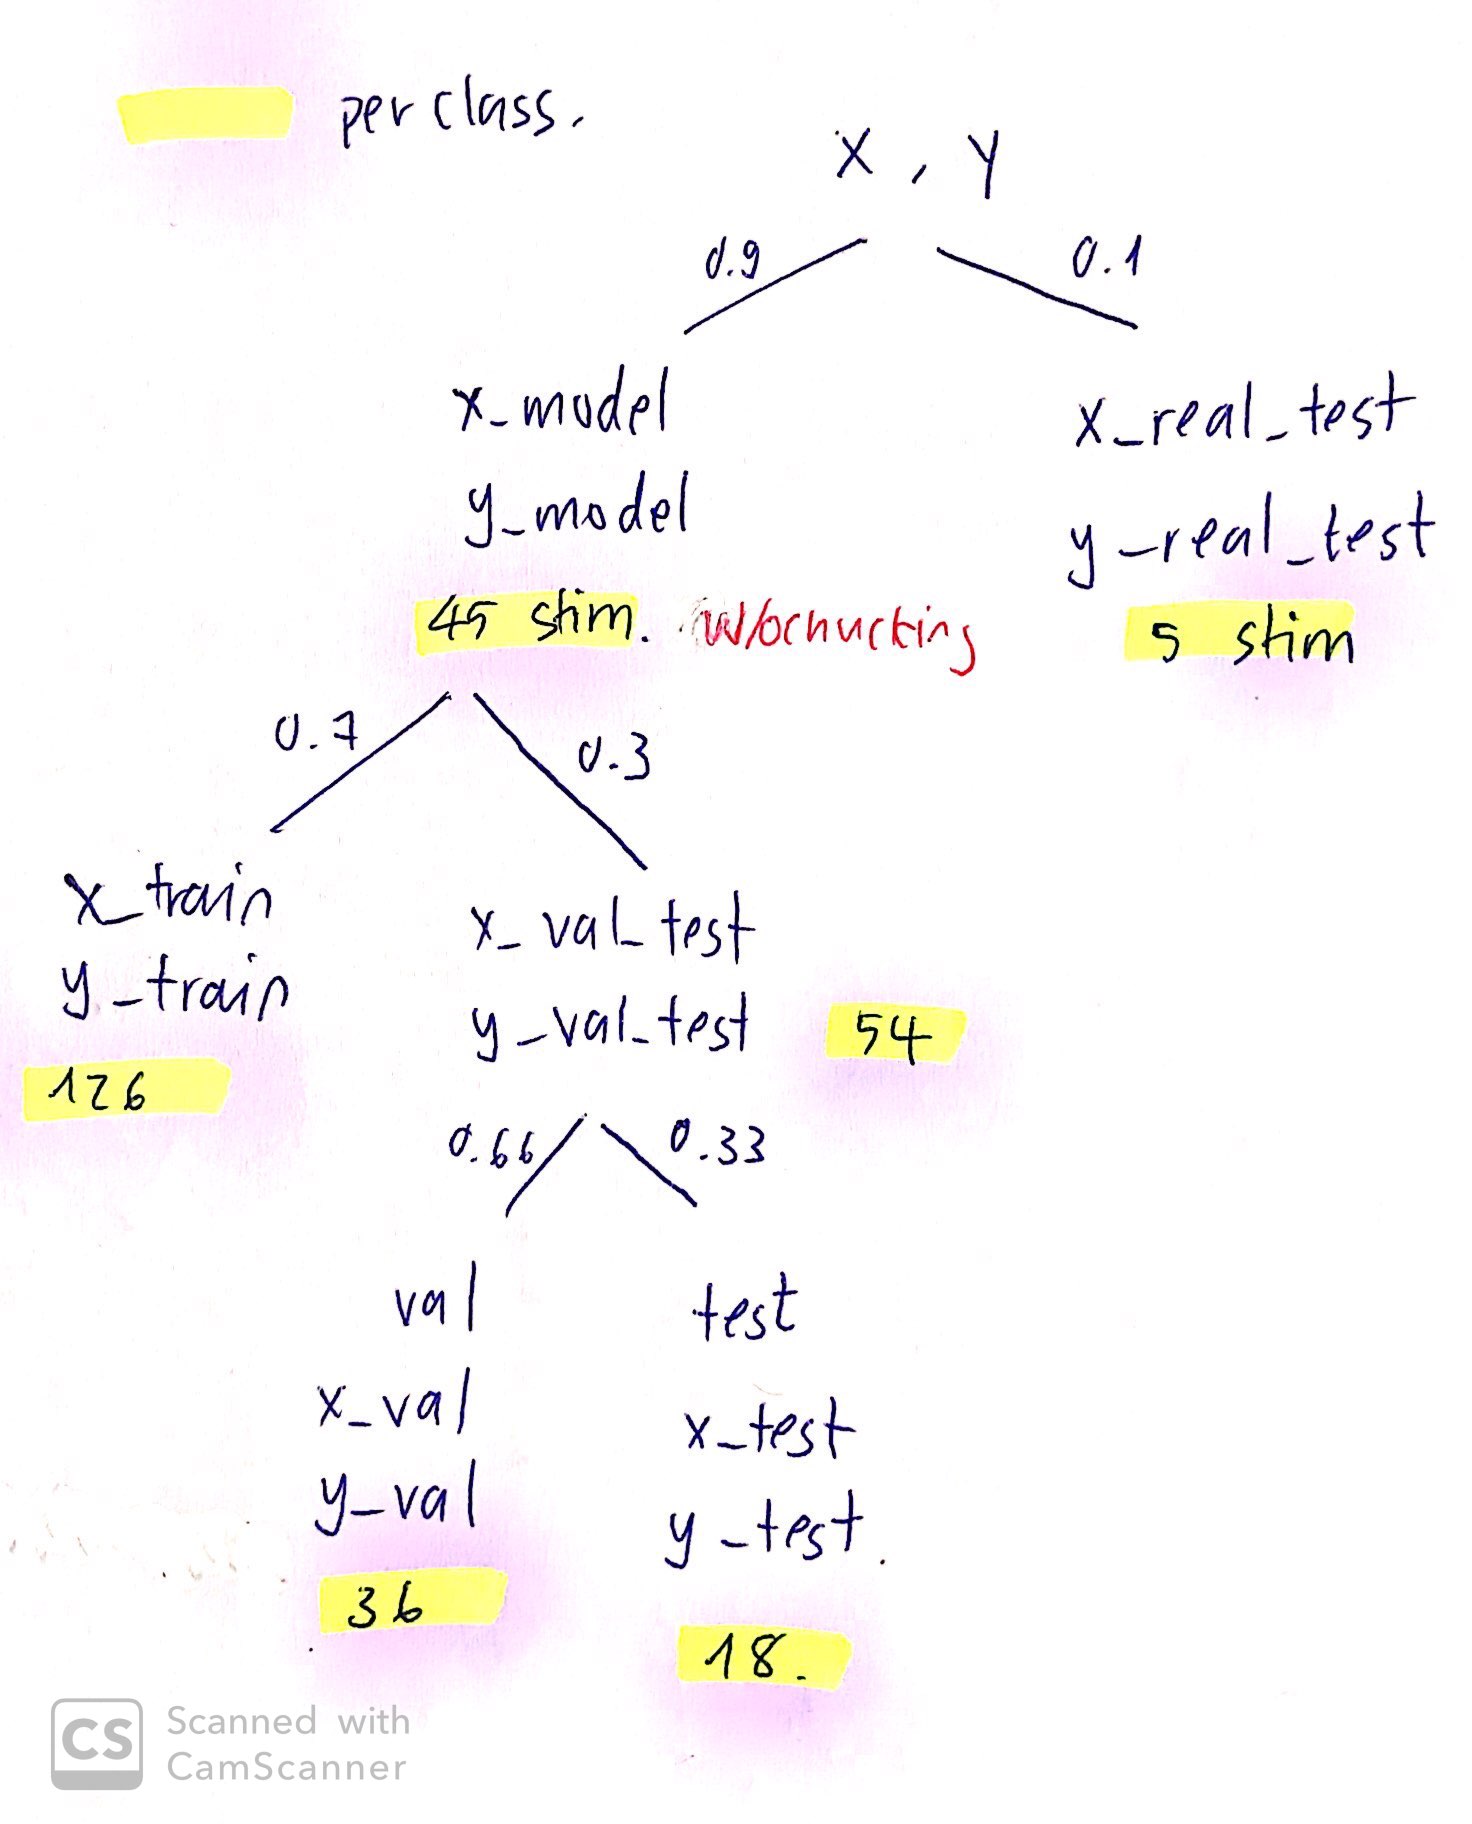 per class.
X , Y
0.9
0.1
x_model
y_model
45 stim.
w/ochucking
x_real_test
y_real_test
5 stim
0.7
0.3
x_train
y_train
126
x_val_test
y_val_test
54
0.66
0.33
val
x_val
y_val
36
test
x_test
y_test.
18.
CS
Scanned with
CamScanner